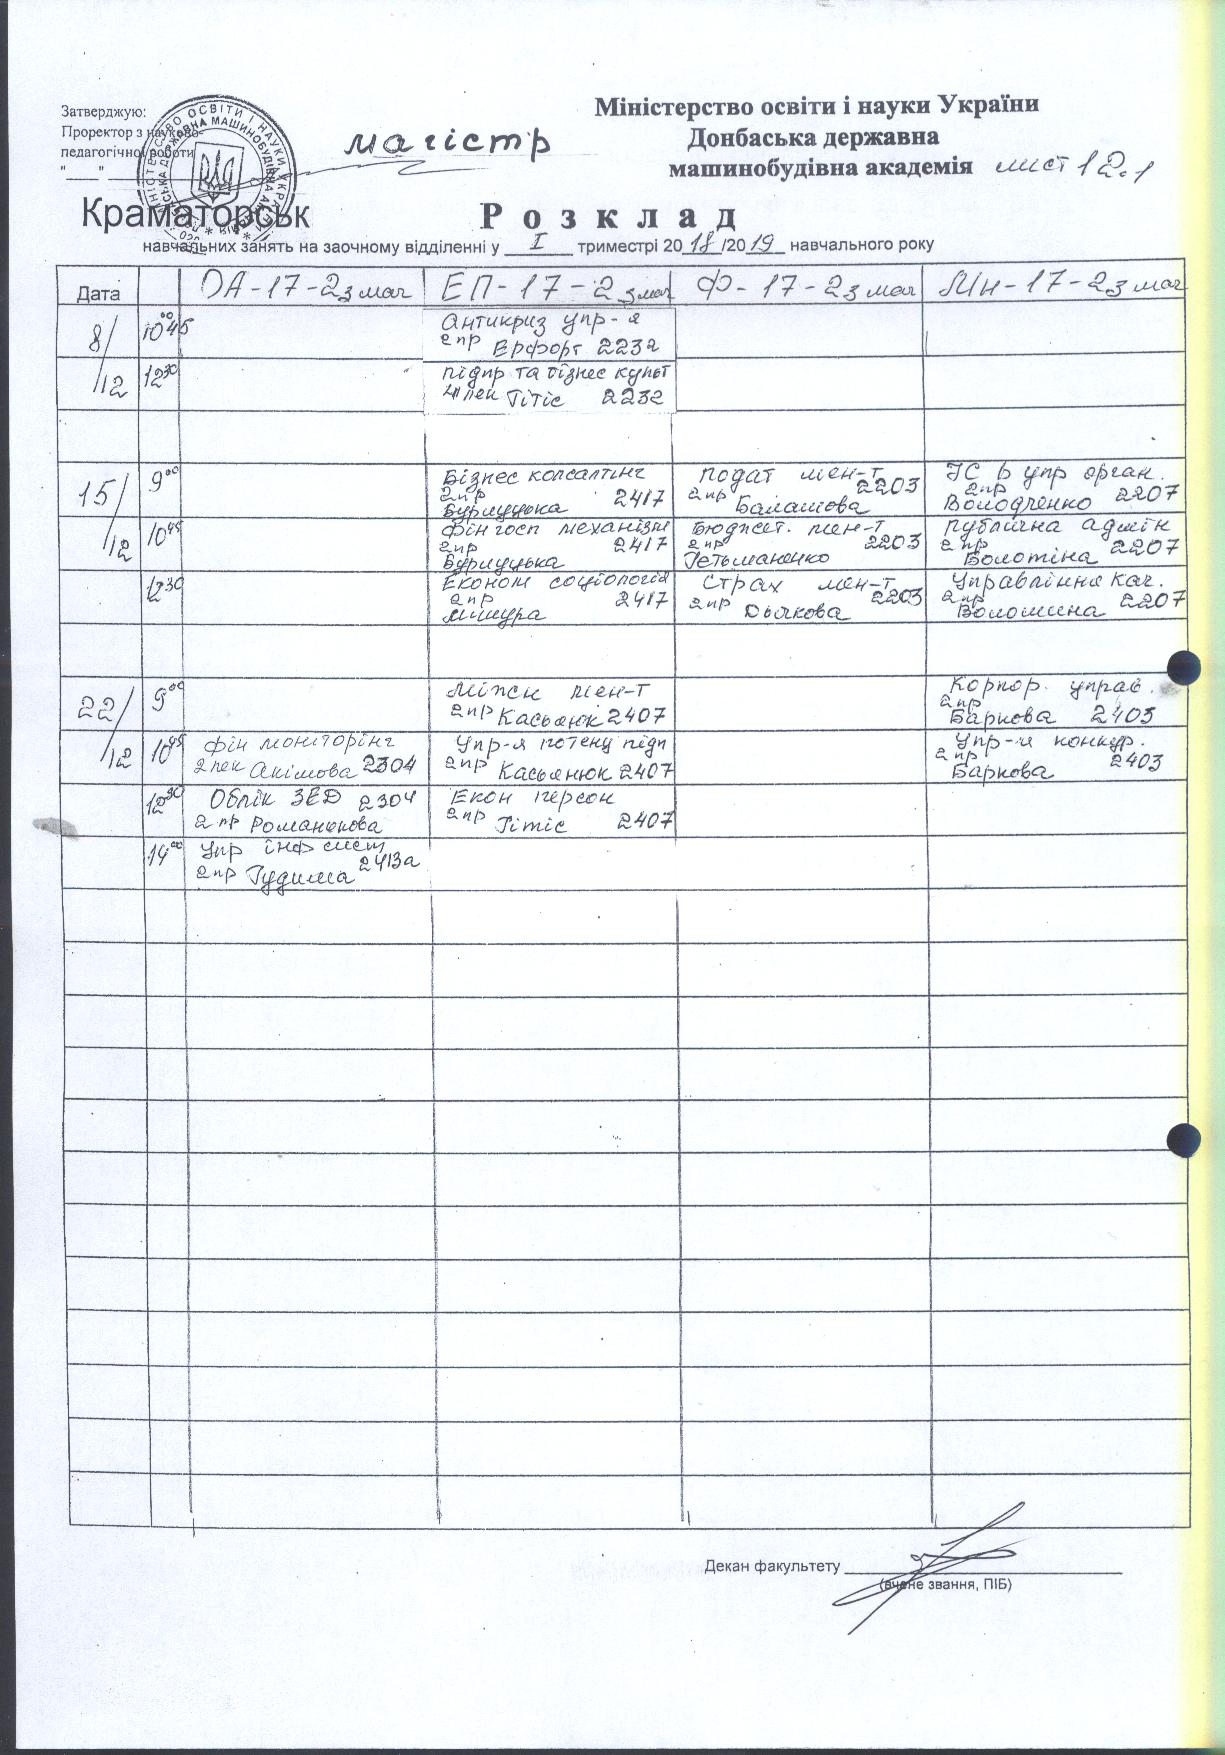 Затверджую:
Проректор з науково-
педагогічної роботи
"____" 
магістр
Міністерство освіти і науки України
Донбаська державна
машинобудівна академія лист 12.1
Краматорськ
Розклад
навчальних занять на заочному відділенні у I триместрі 2018/2019 навчального року
Дата ОА-17-2з маг ЕП-17-2з маг Ф-17-2з маг Мн-17-2з маг
8/12 10 45 Антикриз упр-я
2пр Ерфорт 223а
12 30 підпр та бізнес культ
лек Гітіс 2232
15/12 9 00 Бізнес консалтинг Подат мен-т ІС в упр орган.
2пр 2417 2пр Балашова 2203 2пр 2207
Бурлуцька Володченко
10 45 Фін госп механізм Бюджет. мен-т Публічна адмін
2пр 2417 2пр 2203 2пр 2207
Бурлуцька Гетьманенко Болотіна
12 30 Економ соціологія Страх мен-т Управління кач.
2пр 2417 2пр Дьякова 2203 2пр 2207
Мішура Волошина
22/12 9 00 Міжн мен-т Корпор. управ.
2пр Касьянюк 2407 2пр
Баркова 2403
10 45 Фін моніторінг Упр-я потенц підп Упр-я конкур.
2лек Акімова 2304 2пр Касьянюк 2407 2пр Баркова 2403
12 30 Облік ЗЕД 2304 Екон персон
2пр Романькова 2пр Гітіс 2407
14 00 Упр інф сист
2пр Гудима 2413а
Декан факультету
(вчене звання, ПІБ)